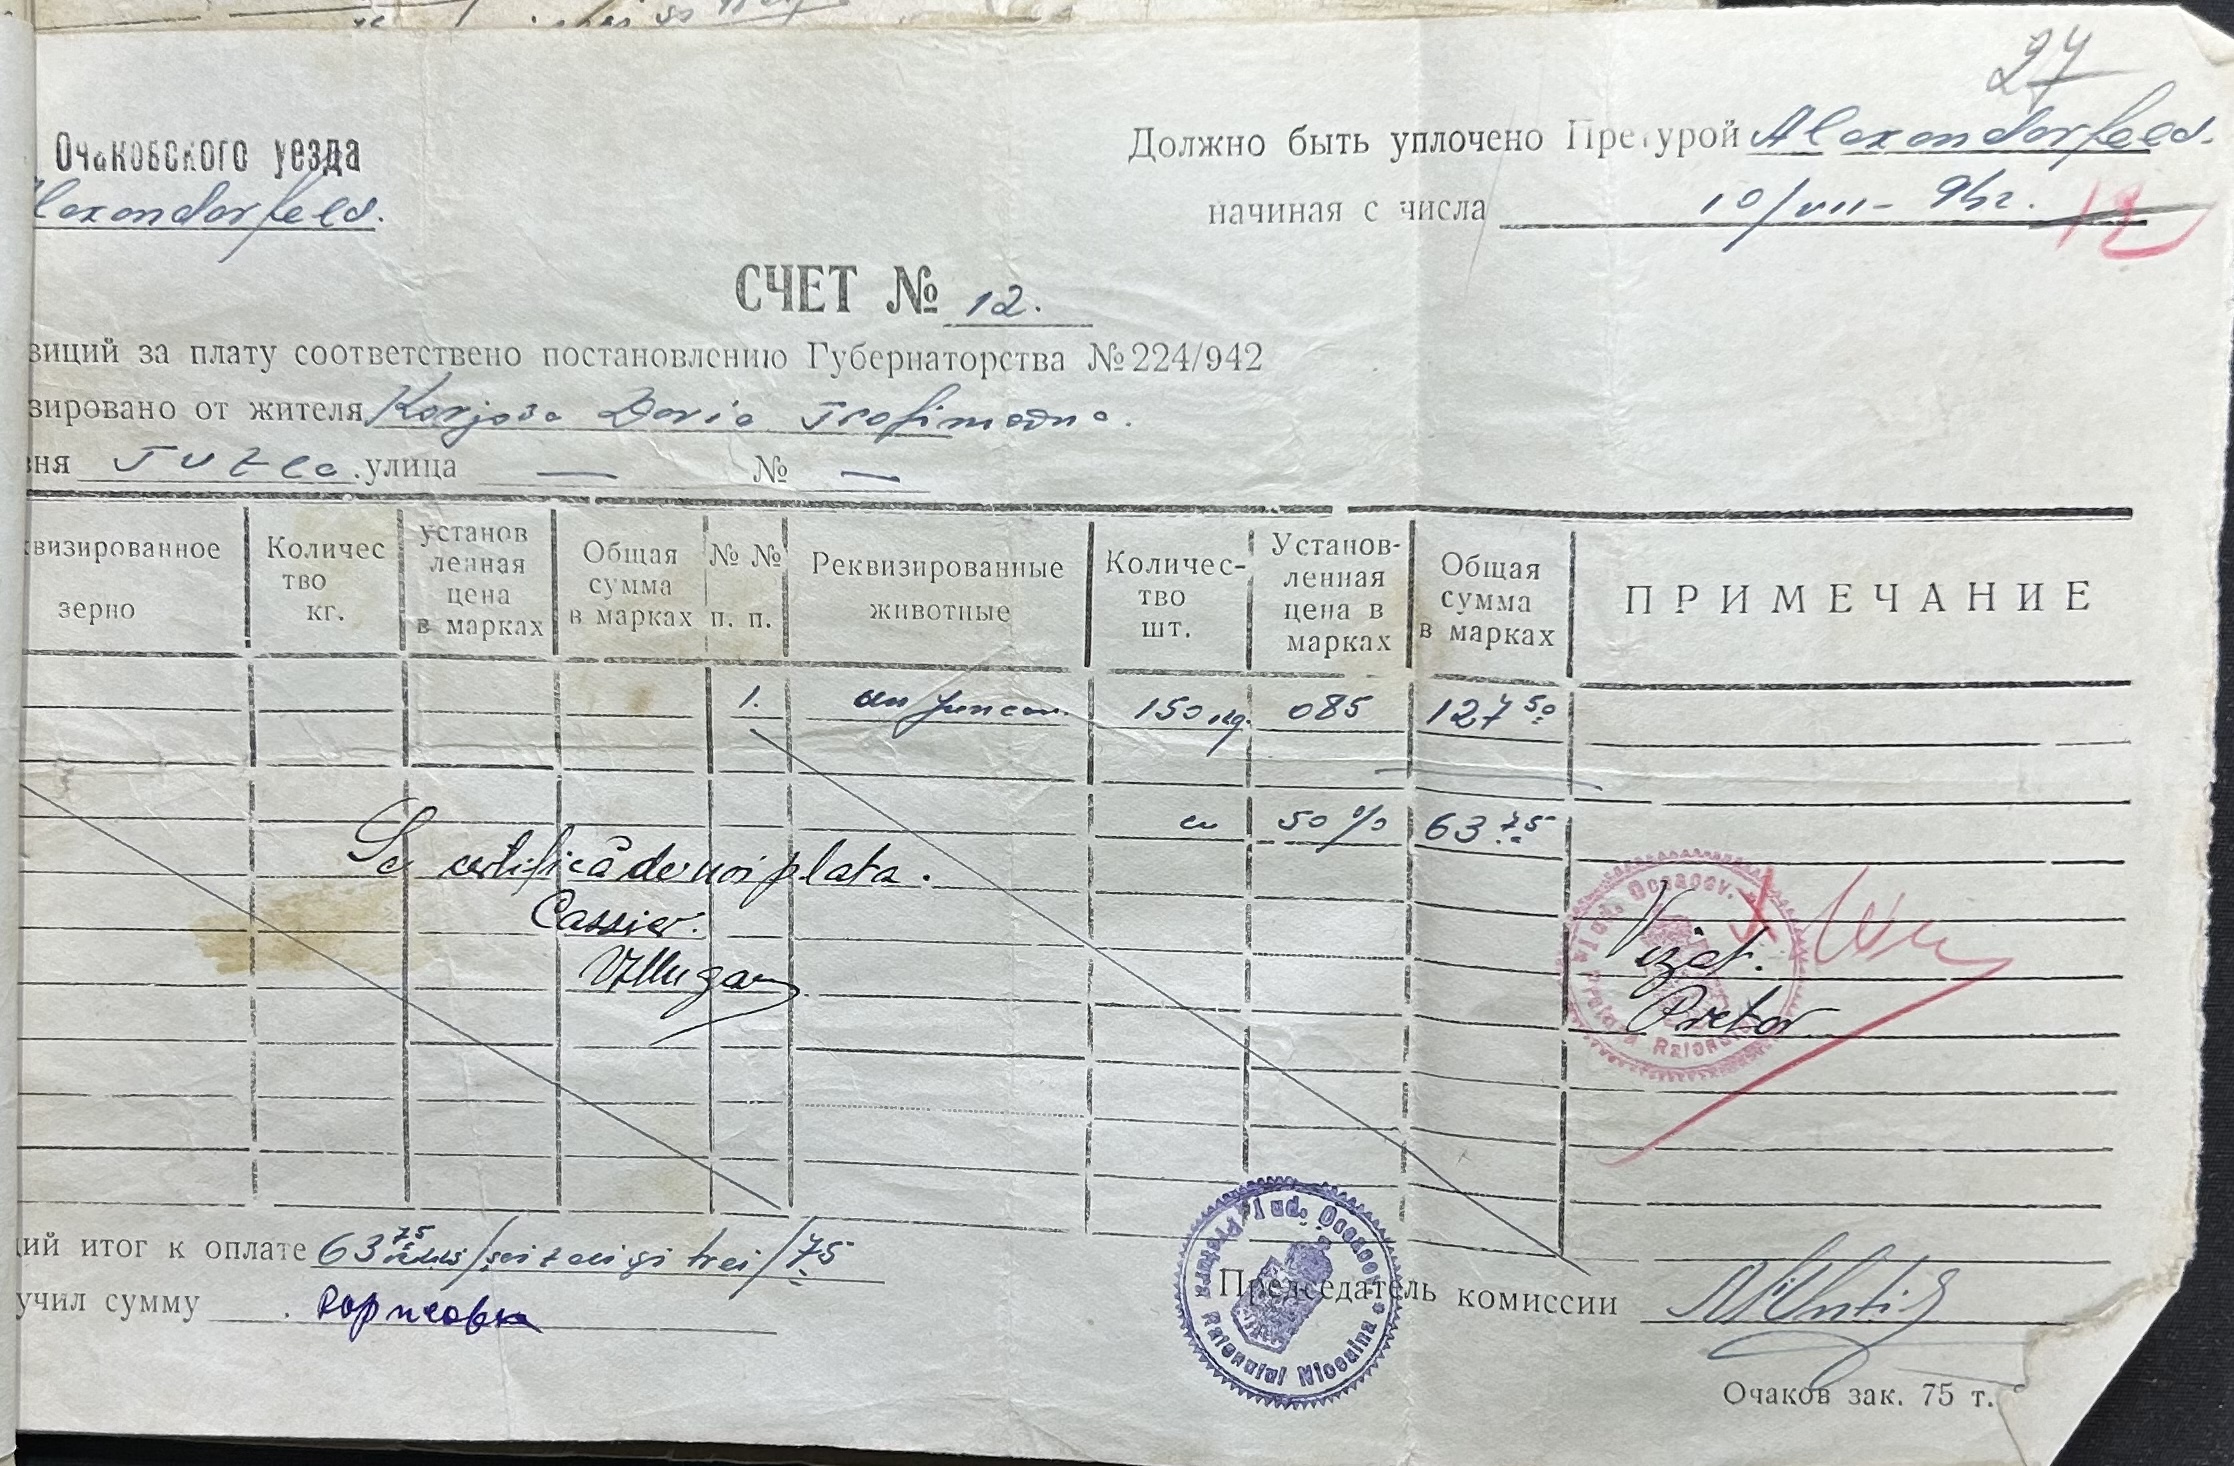 27
Очаковского уезда
Alexandorfeld.
Должно быть уплочено Претурой Alexandorfeld.
начиная с числа 10/VII-942.
12
СЧЕТ № 12.
зиций за плату соответствено постановлению Губернаторства № 224/942
зировано от жителя Korjova Daria Trofimovna.
вня Tuzla. улица — № —
квизированное зерно
Количес тво кг.
установ ленная цена в марках
Общая сумма в марках
№ № п. п.
Реквизированные животные
Количес- тво шт.
Установ- ленная цена в марках
Общая сумма в марках
ПРИМЕЧАНИЕ
1. un juncan 150 kg. 085 127 50
cu 50 % 63 75
Se certifică de noi plata.
Cassier.
Vizat.
Pretor
Jud. Oceacov. Pretura Raionului
щий итог к оплате 63 75 /seizeci și trei/75
учил сумму
Jud. Oceacov * Pretura Raionului Nicealna
Председатель комиссии
Очаков зак. 75 т.